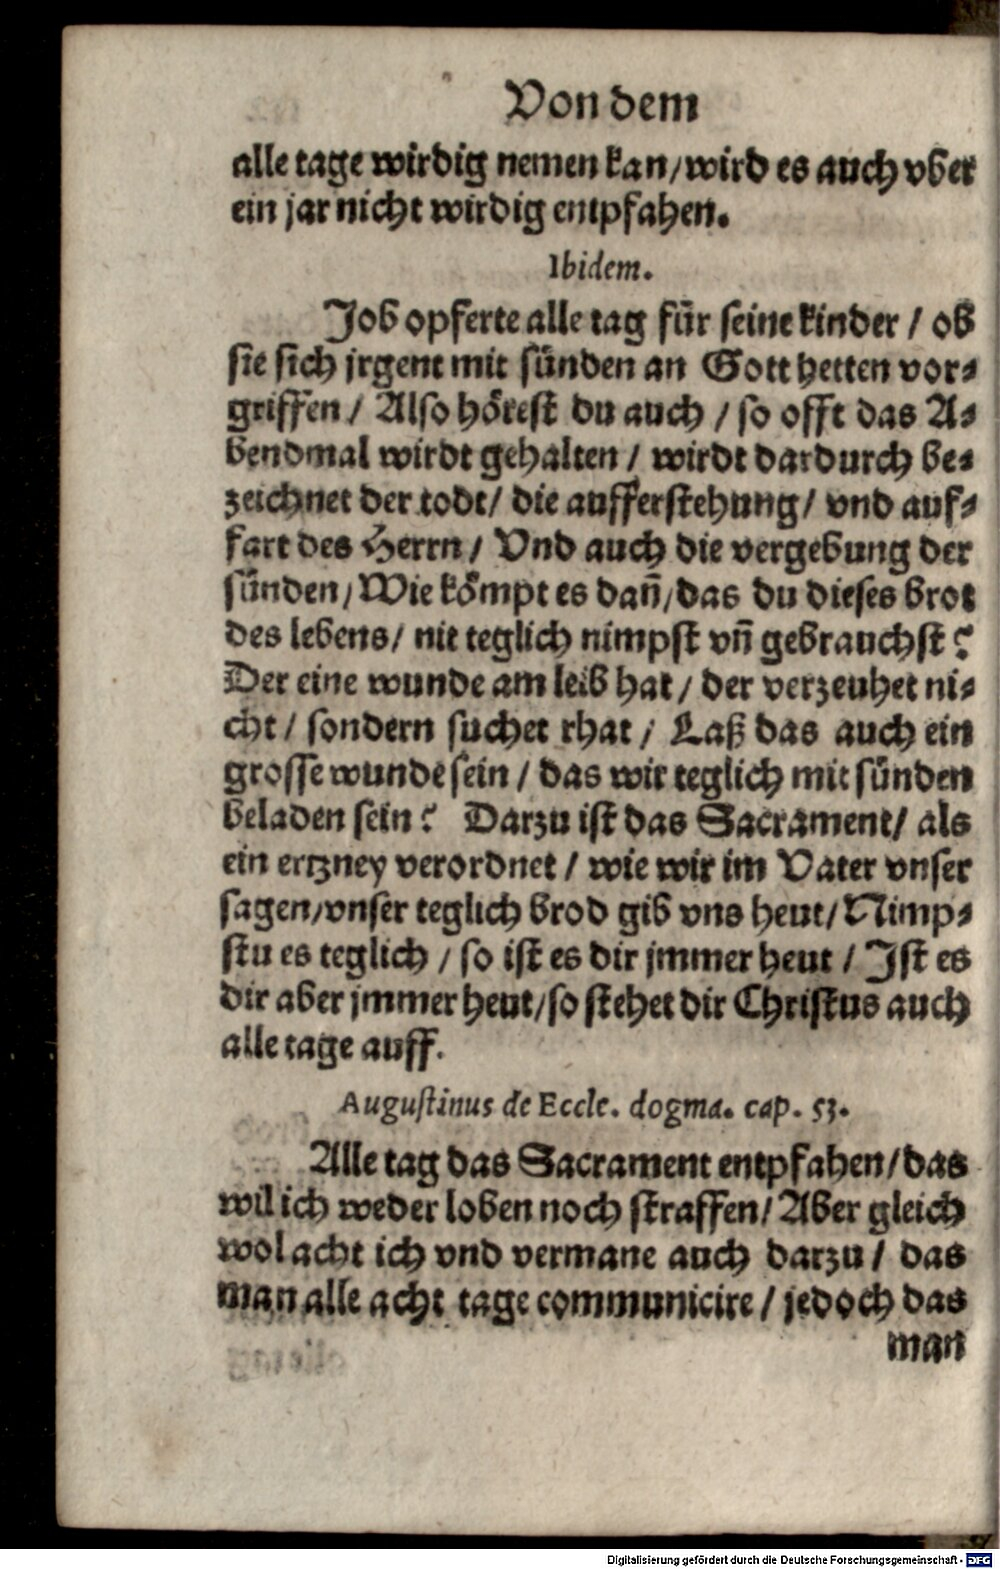 Von dem
alle tage wirdig nemen kan/ wird es auch vber
ein jar nicht wirdig entpfahen.
Ibidem.
Job opferte alle tag für seine kinder / ob
sie sich jrgent mit sünden an Gott hetten vor⸗
griffen / Also hörest du auch / so offt das A⸗
bendmal wirdt gehalten / wirdt dardurch be⸗
zeichnet der todt/ die aufferstehung/ vnd auf⸗
fart des Herrn / Vnd auch die vergebung der
sünden/ Wie kömpt es dañ/ das du dieses brot
des lebens/ nit teglich nimpst vñ gebrauchst?
Der eine wunde am leib hat / der verzeuhet ni⸗
cht / sondern suchet rhat / Laß das auch ein
grosse wunde sein / das wir teglich mit sünden
beladen sein? Darzu ist das Sacrament/ als
ein ertzney verordnet / wie wir im Vater vnser
sagen/ vnser teglich brod gib vns heut/ Nimp⸗
stu es teglich / so ist es dir jmmer heut / Ist es
dir aber jmmer heut/ so stehet dir Christus auch
alle tage auff.
Augustinus de Eccle. dogma. cap. 53.
Alle tag das Sacrament entpfahen/ das
wil ich weder loben noch straffen/ Aber gleich
wol acht ich vnd vermane auch darzu / das
man alle acht tage communicire / jedoch das
man
Digitalisierung gefördert durch die Deutsche Forschungsgemeinschaft - DFG